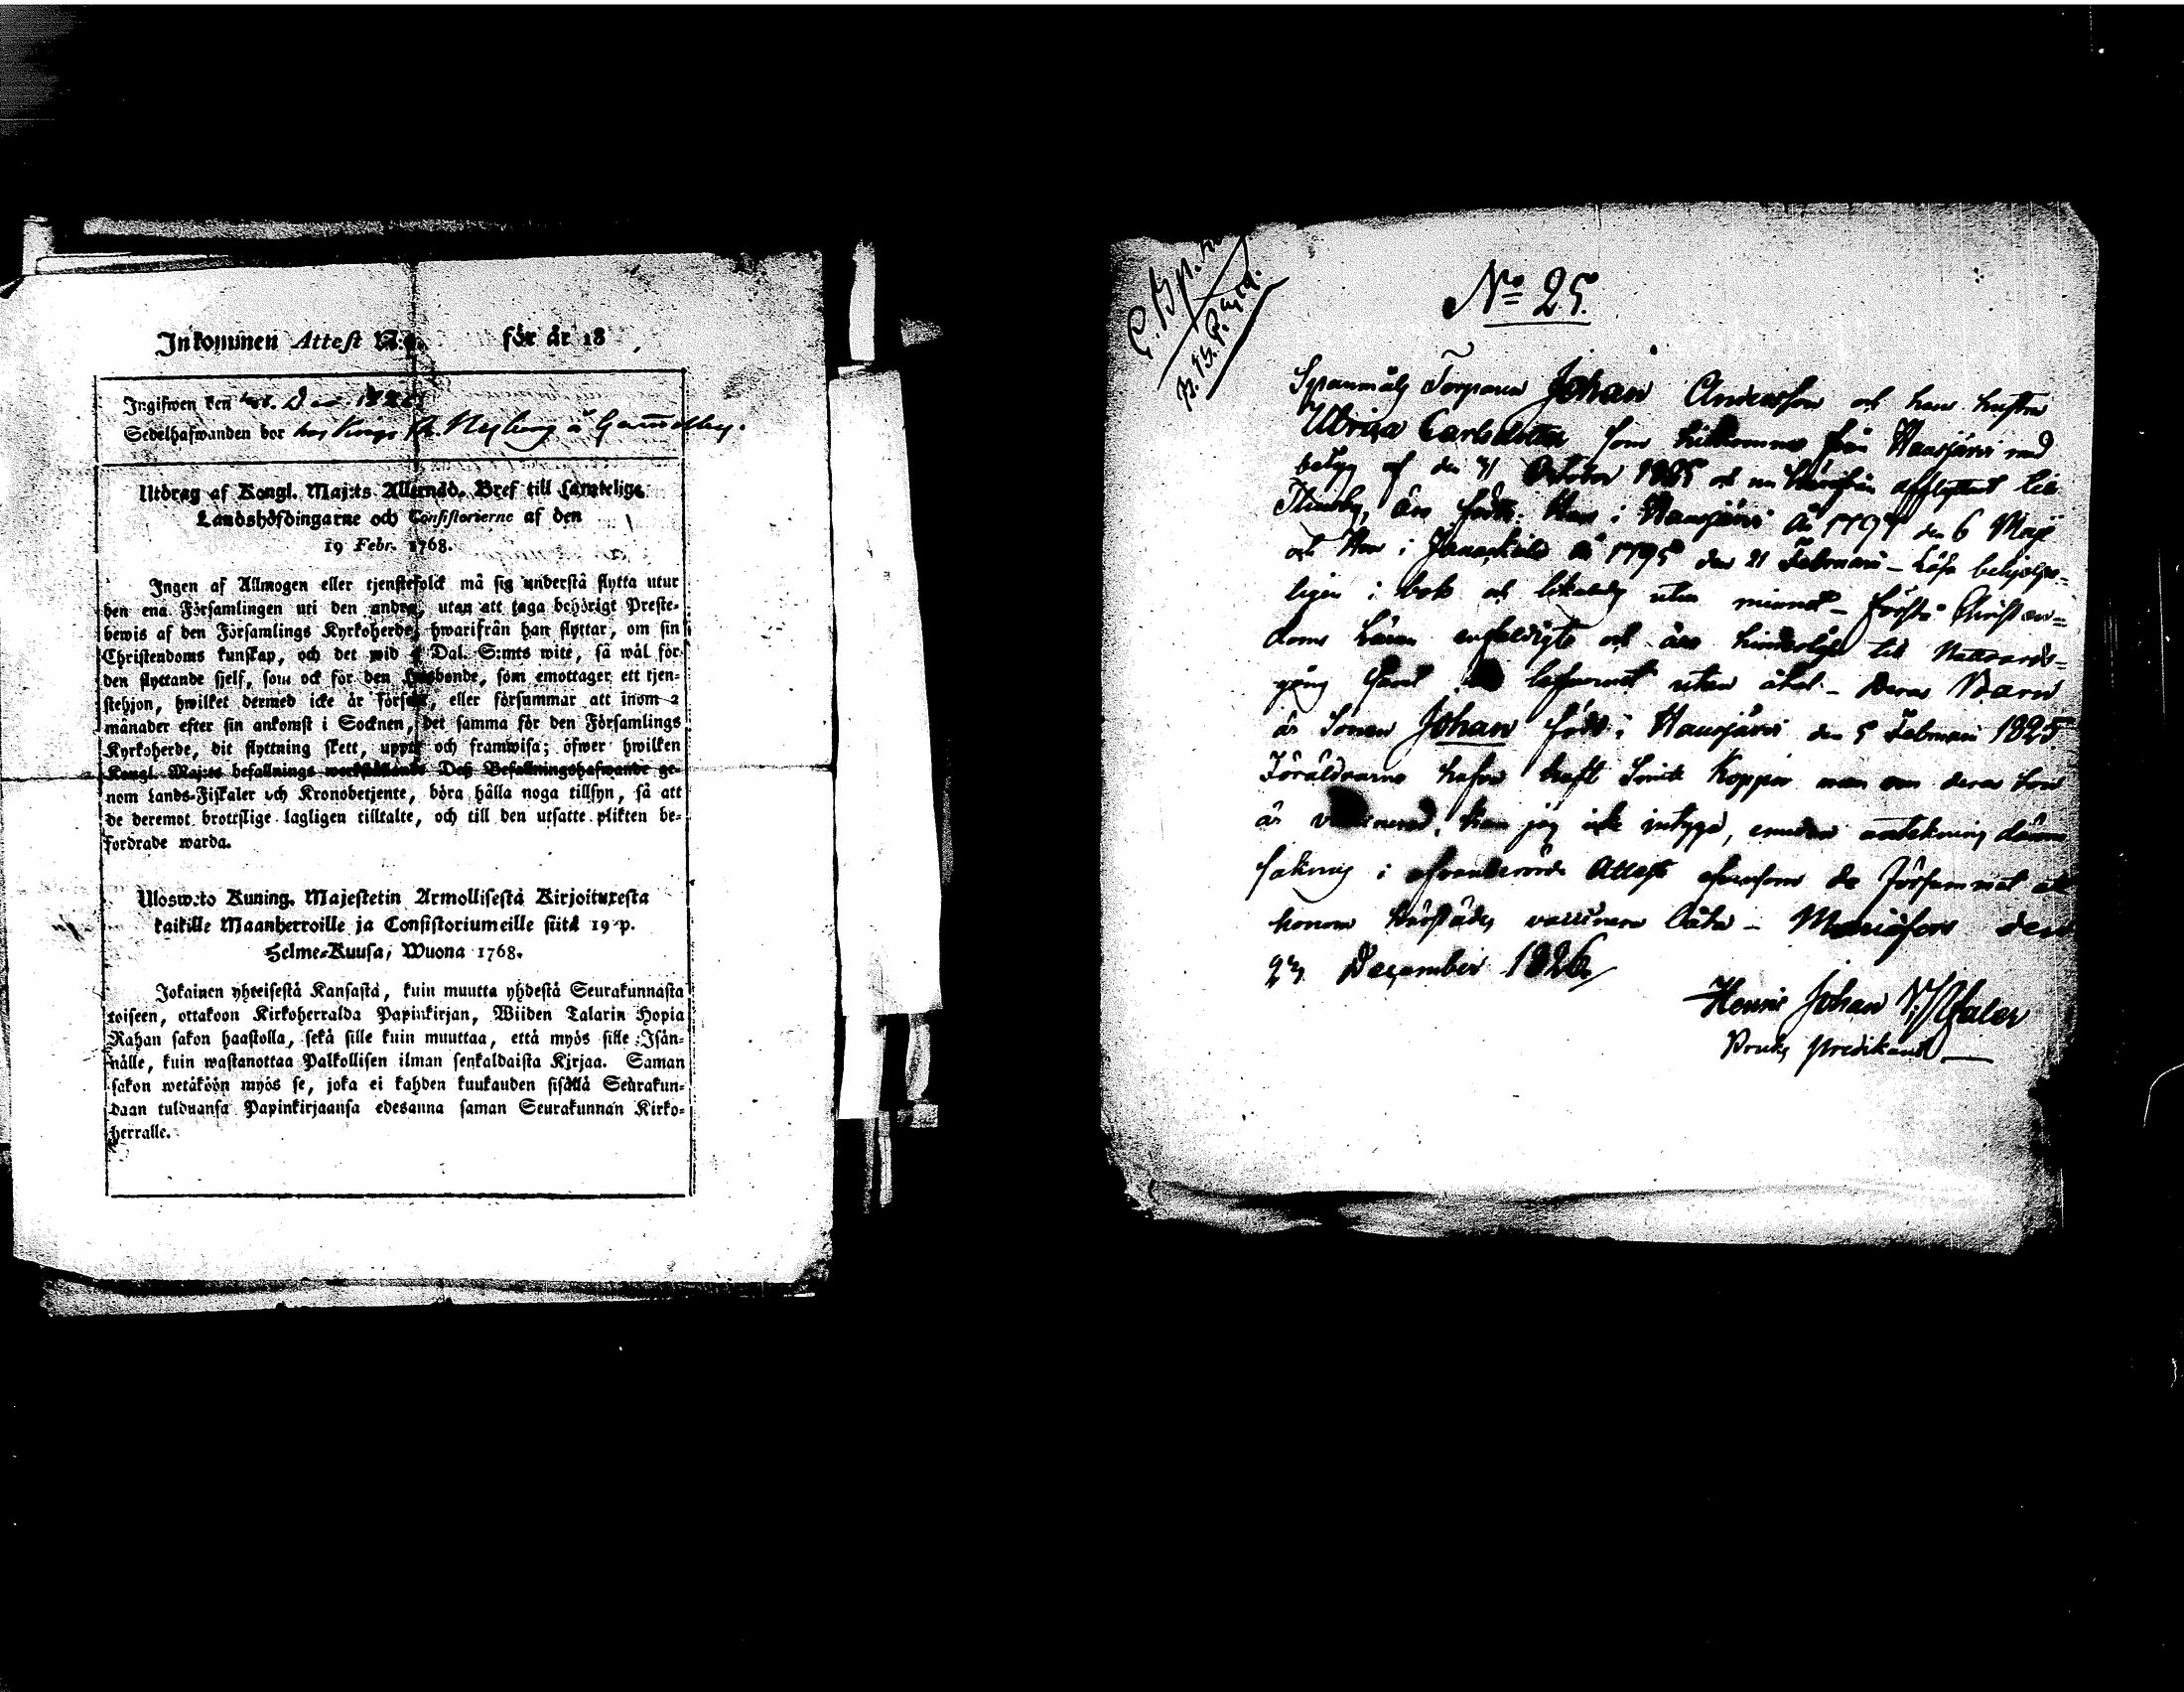 Inkommen Attest N:o för år 18
Ingifwen den
Sedelhafwanden bor hos
Utdrag af Kongl. Maj:ts Allernåd. Bref till samtelige
Landshöfdingarne och Consistorierne af den
19 Febr. 1768.
Ingen af Allmogen eller tjenstefolck må sig understå flytta utur
den ena Församlingen uti den andra, utan att taga behörigt Preste-
bewis af den Församlings Kyrkoherde, hwarifrån han flyttar, om sin
Christendoms kunskap, och det wid Dal. S:mts wite, så wäl för
den flyttande sjelf, som ock för den husbonde, som emottager ett tjen-
stehjon, hwilket dermed icke är försedt, eller försummar att inom 2
månader efter sin ankomst i Socknen, det samma för den Församlings
Kyrkoherde, dit flyttning skett, uppte och framwisa; öfwer hwilken
Kongl. Maj:ts befallnings werkställande Deß Befallningshafwande ge-
nom Lands-Fiskaler och Kronobetjente, böra hålla noga tillsyn, så att
de deremot brottslige lagligen tilltalte, och till den utsatte plikten be-
fordrade warda.
Ulosweto Kuning. Majestetin Armollisestä Kirjoituxesta
kaikille Maanherroille ja Consistoriumeille siitä 19 p.
Helme-Kuusa, Wuona 1768.
Jokainen yhteisestä Kansasta, kuin muutta yhdestä Seurakunnasta
toiseen, ottakoon Kirkoherralda Papinkirjan, Wiiden Talarin Hopia
Rahan sakon haastolla, sekä sille kuin muuttaa, että myös sille Isän-
nälle, kuin wastanottaa Palkollisen ilman senkaldaista Kirjaa. Saman
sakon wetäköön myös se, joka ei kahden kuukauden sisällä Seurakun-
daan tulduansa Papinkirjaansa edesanna saman Seurakunnan Kirko-
herralle.
No 25.
Torparen Johan Andersson och hans hustru
Ulrica Carlsdotter som hitkommo från Hausjärvi med
betyg af den Octobr 1825 och nu härifrån afflyttat till
äro födde: Han i Hausjärvi år 1797 den 6 Maji
och Hon i Janackala år 1795 den 21 Februari - Läsa behjelpe-
ligen i bok och likaledes utan minnet - förstå Christen-
doms Läran enfaldigt och äro hinderlöse till Nattvards-
gång samt lefvernet utan åtal - Deras Barn
är Sonen Johan född i Hausjärvi den 5 Februari 1825
Föräldrarne hafva haft Koppor men om deras Son
är vaccinerad, kan jag icke intyga, emedan anteckning därom
saknas i ofvanberörde Attest efvensom de försummat att
honom härstädes vaccinera låta - Mariefors den
23 December 1826
Henric Johan
Bruks Predikant